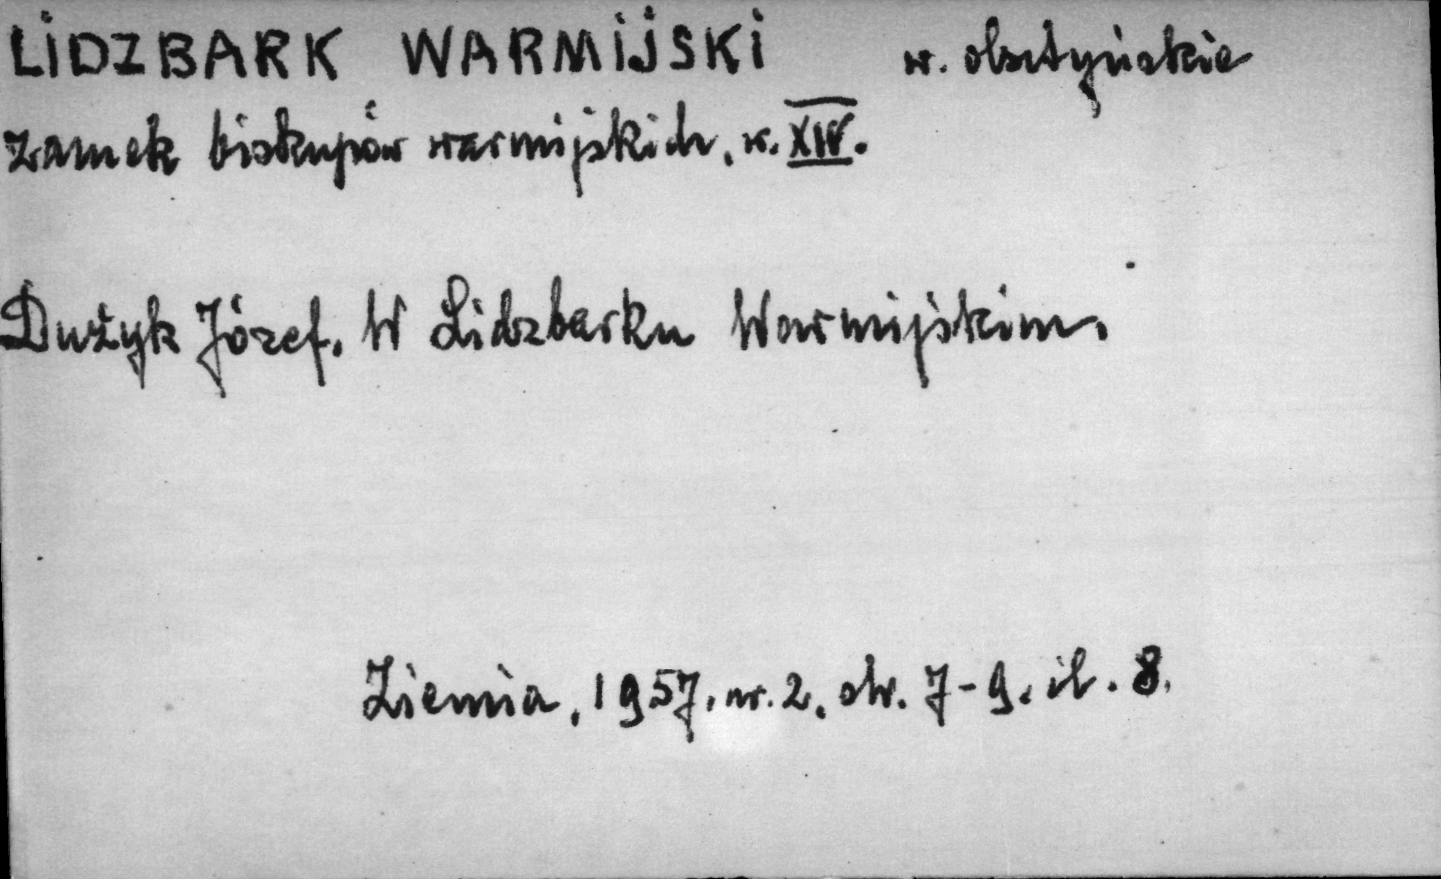 LIDZBARK WARMIJSKI w. olsztyńskie
zamek biskupów warmijskich, w. XIV.
Dużyk Józef. W Lidzbarku Warmijskim.
Ziemia, 1957, nr. 2, str. 7-9, il. 8.